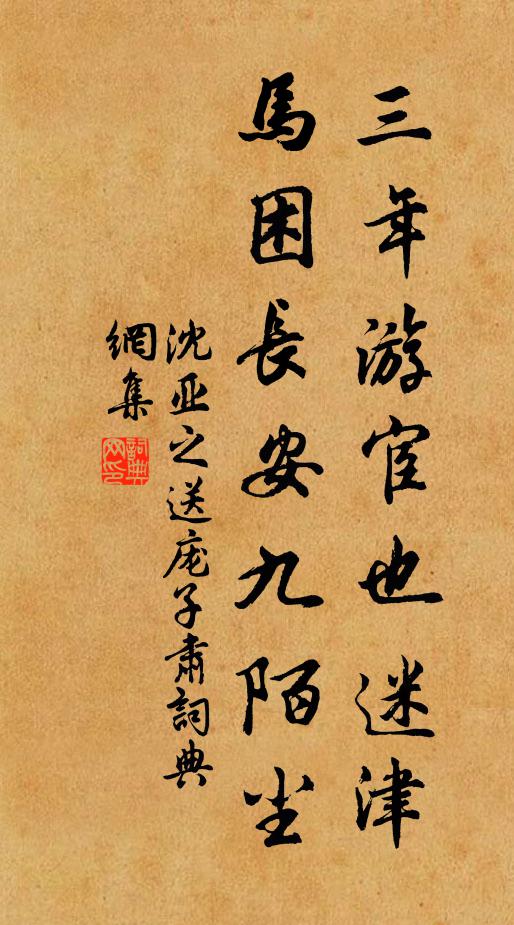 三年游宦也迷津
馬困長安九陌尘
沈亚之送庞子肃詞典
網集
詞典
网印